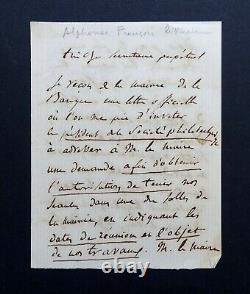 Alphonse François
secrétaire perpétuel
Je reçois de la mairie de la
Banque une lettre officielle
où l'on me prie d'inviter
le président de la Société philotechnique
à adresser à M. le maire
une demande afin d'obtenir
l'autorisation de tenir nos
séances dans une des salles de
la mairie, en indiquant les
dates de réunion et l'objet
de nos travaux. M. le maire